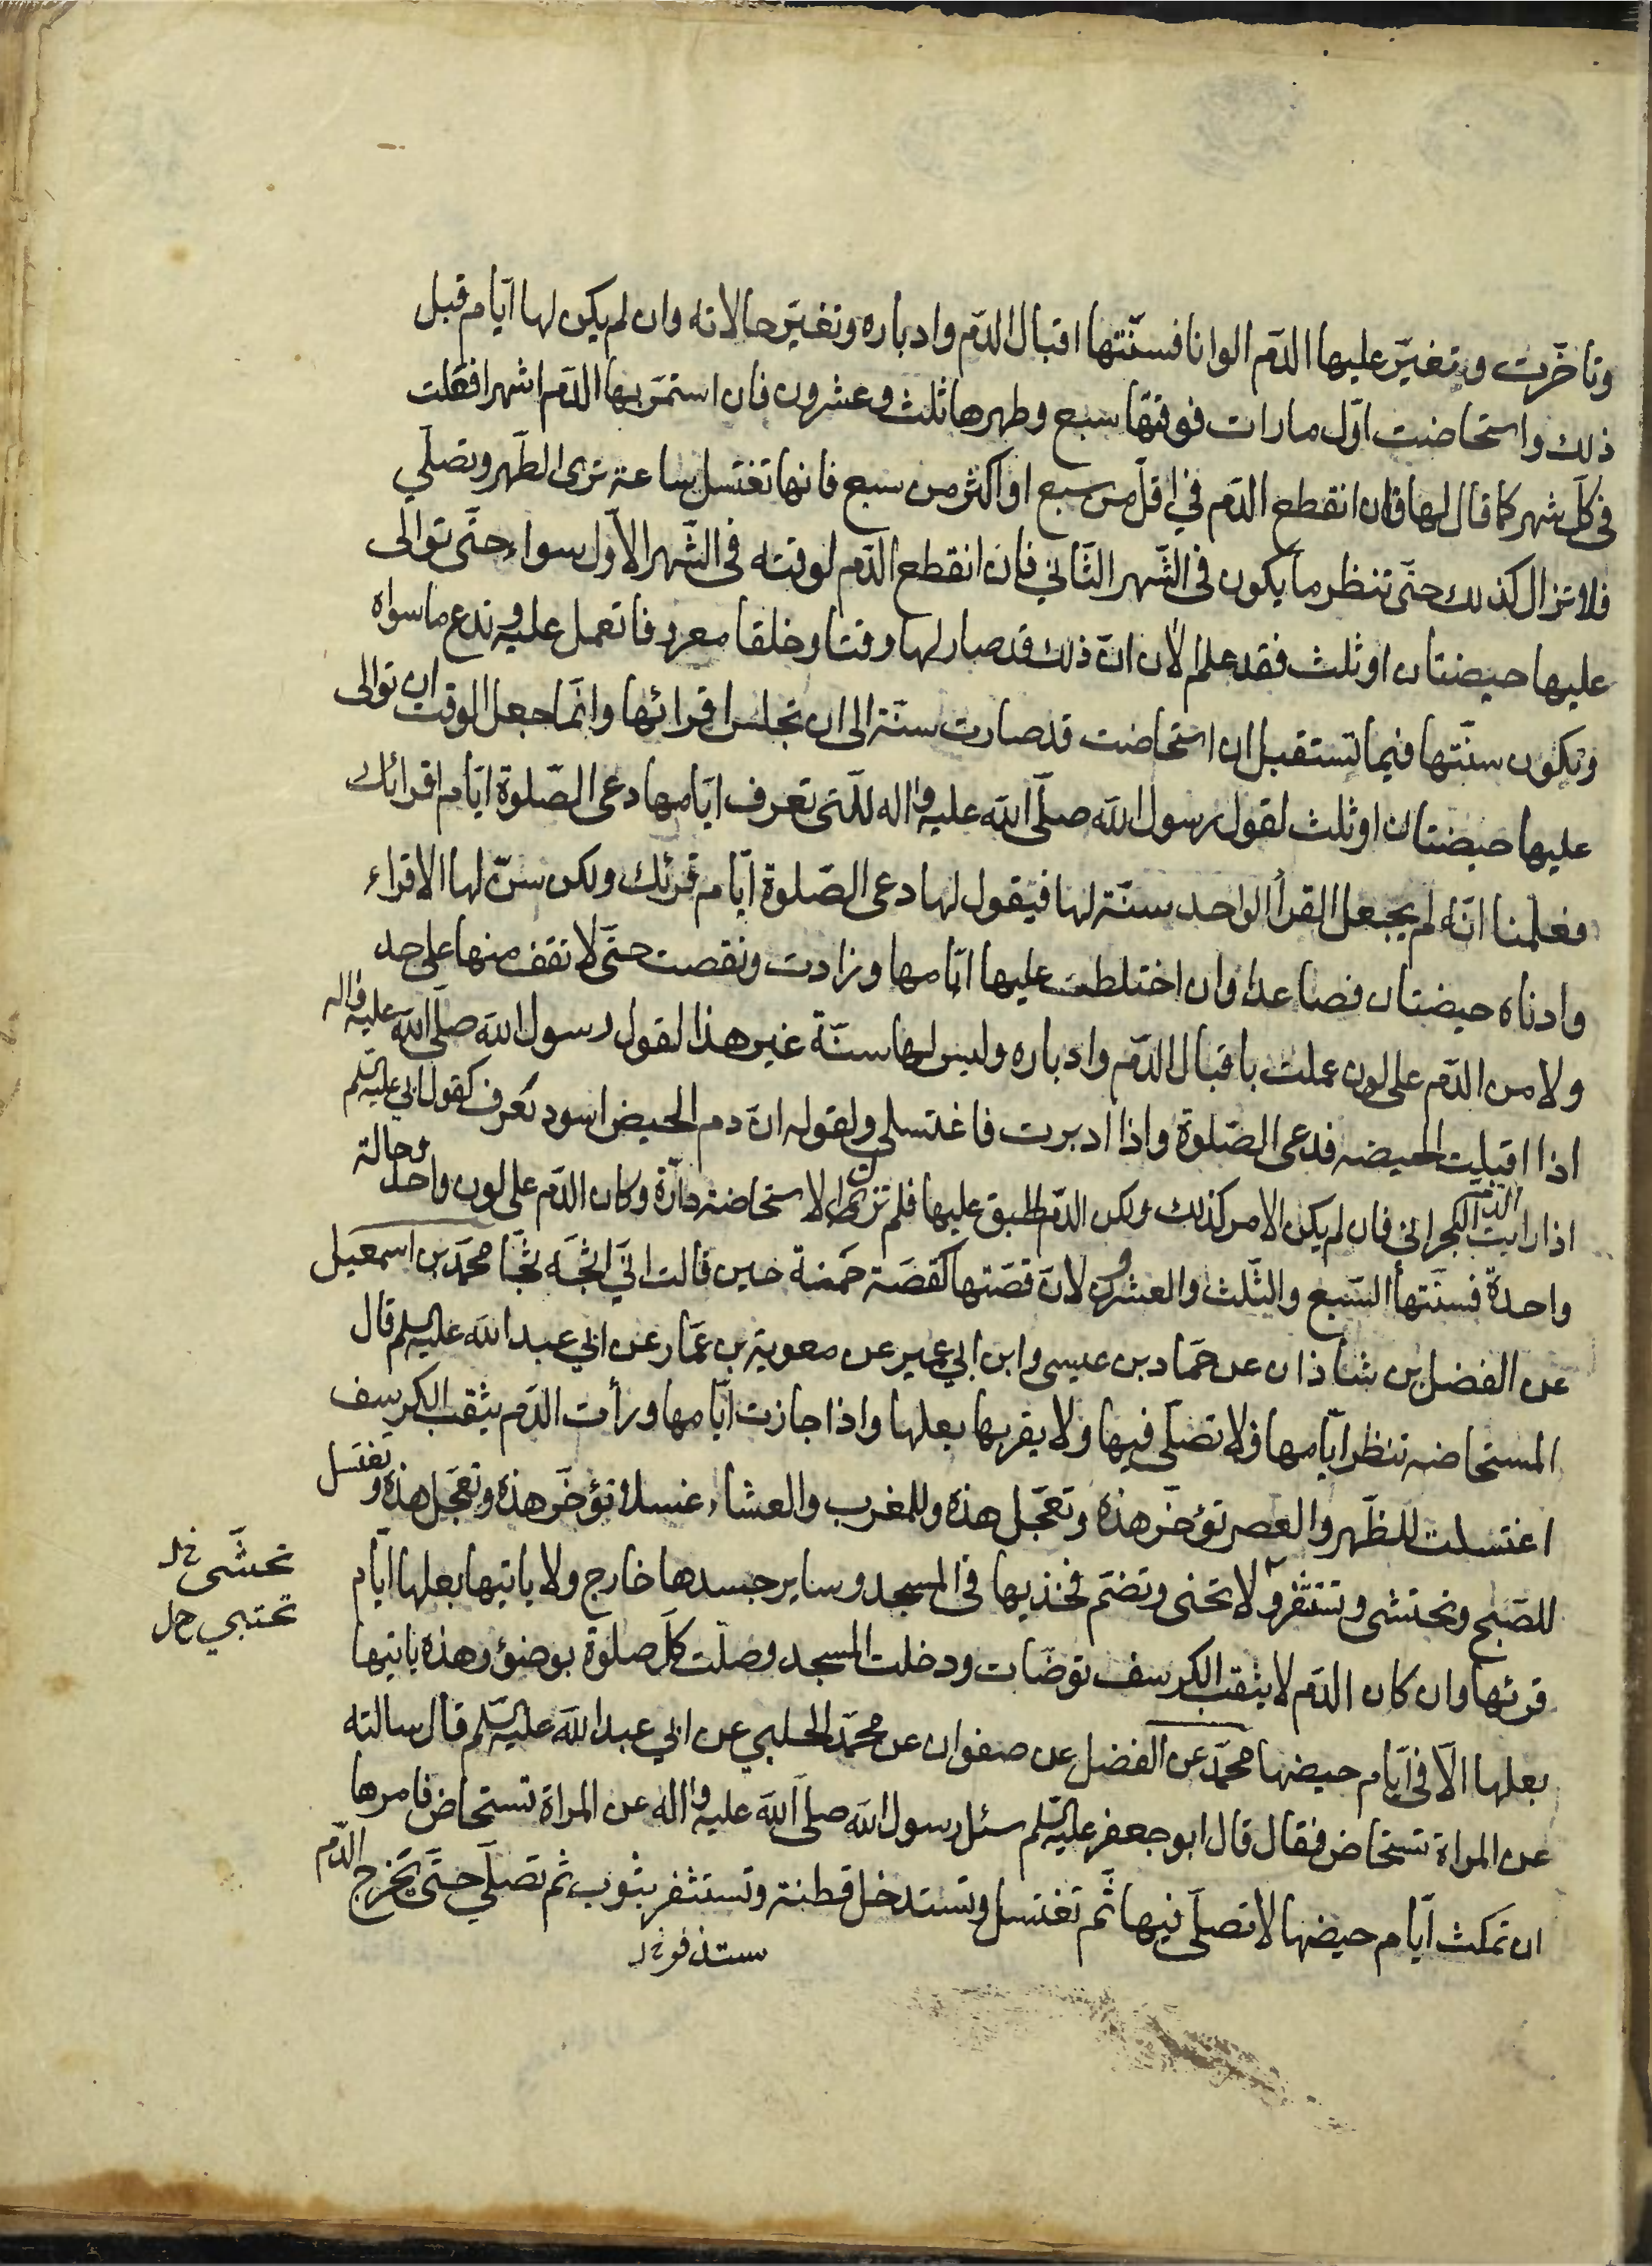 وتاخّرت وتغيّر عليها الدّم الوانا فسنّتها اقبال الدّم وادباره وتغيّر حالاته وان لم يكن لها ايّام قبل
ذلك واستحاضت اوّل مارات فوقتها سبع وطهرها ثلث وعشرون فان استمرّ بها الدّم اشهرا فعلت
فى كلّ شهر كما قال لها فان انقطع الدّم في اقلّ من سبع او اكثر من سبع فانها تغتسل ساعة ترى الطّهر وتصلّي
فلا تزال كذلك حتّى تنظر ما يكون فى الشّهر الثّاني فان انقطع الدّم لوقته فى الشّهر الاوّل سواء حتّى توالى
عليها حيضتان او ثلث فقد علم الان انّ ذلك قد صار لها وقتا وخلقا معروفا تعمل عليه وتدع ما سواه
وتكون سنّتها فيما تستقبل ان استحاضت قد صارت سنّة الى ان تجلس اقرائها وانّما جعل الوقت ان توالى
عليها حيضتان او ثلث لقول رسول اللّه صلّى اللّه عليه واله للّتى تعرف ايّامها دعى الصّلوة ايّام اقرائك
فعلمنا انّه لم يجعل القرأ الواحد سنّة لها فيقول لها دعى الصّلوة ايّام قرئك ولكن سنّ لها الاقراء
وادناه حيضتان فصاعدا وان اختلطت عليها ايّامها وزادت ونقصت حتّى لا تقف منها على حد
ولا من الدّم على لون عملت باقبال الدّم وادباره وليس لها سنّة غير هذا لقول رسول اللّه صلّى اللّه عليه واله
اذا اقبلت الحيضه فدعى الصّلوة واذا ادبرت فاغتسلى ولقوله انّ دم الحيض اسود يعرف كقول ابي عليه السّلم
اذا رايت الدّم البحرانى فان لم يكن الامر كذلك ولكن الدّم اطبق عليها فلم تزل الاستحاضة دارّة وكان الدّم على لون واحد وحالة
واحدة فسنّتها السّبع والثّلث والعشرون لانّ قصّتها كقصّة حمنة حين قالت انّي اثجّه ثجّا محمّد بن اسمعيل
عن الفضل بن شاذان عن حمّاد بن عيسى وابن ابي عمير عن معوية بن عمّار عن ابي عبد اللّه عليه السلم قال
المستحاضه تنظر ايّامها فلا تصلّى فيها ولا يقربها بعلها واذا جازت ايّامها ورأت الدّم يثقب الكرسف
اغتسلت للظّهر والعصر تؤخّر هذه وتعجّل هذه وللمغرب والعشاء غسلا تؤخّر هذه وتعجّل هذه وتغتسل
للصّبح وتحتشى وتستثفر ولا تحنى وتضمّ فخذيها فى المسجد وساير جسدها خارج ولا ياتيها بعلها ايّام
تحشّى خ ل
تحتبي خ ل
قرئها وان كان الدّم لا يثقب الكرسف توضّات ودخلت المسجد وصلّت كلّ صلوة بوضؤ وهذه ياتيها
بعلها الّا فى ايّام حيضها محمّد عن الفضل عن صفوان عن محمّد الحلبي عن ابي عبد اللّه عليه السّلم قال سالته
عن المراة تستحاض فقال قال ابو جعفر عليه السّلم سئل رسول اللّه صلّى اللّه عليه واله عن المراة تستحاض فامرها
ان تمكث ايّام حيضها لا تصلّى فيها ثمّ تغتسل وتستدخل قطنة وتستثفر بثوب ثم تصلّي حتّى يخرج الدّم
ستذفر خ ل